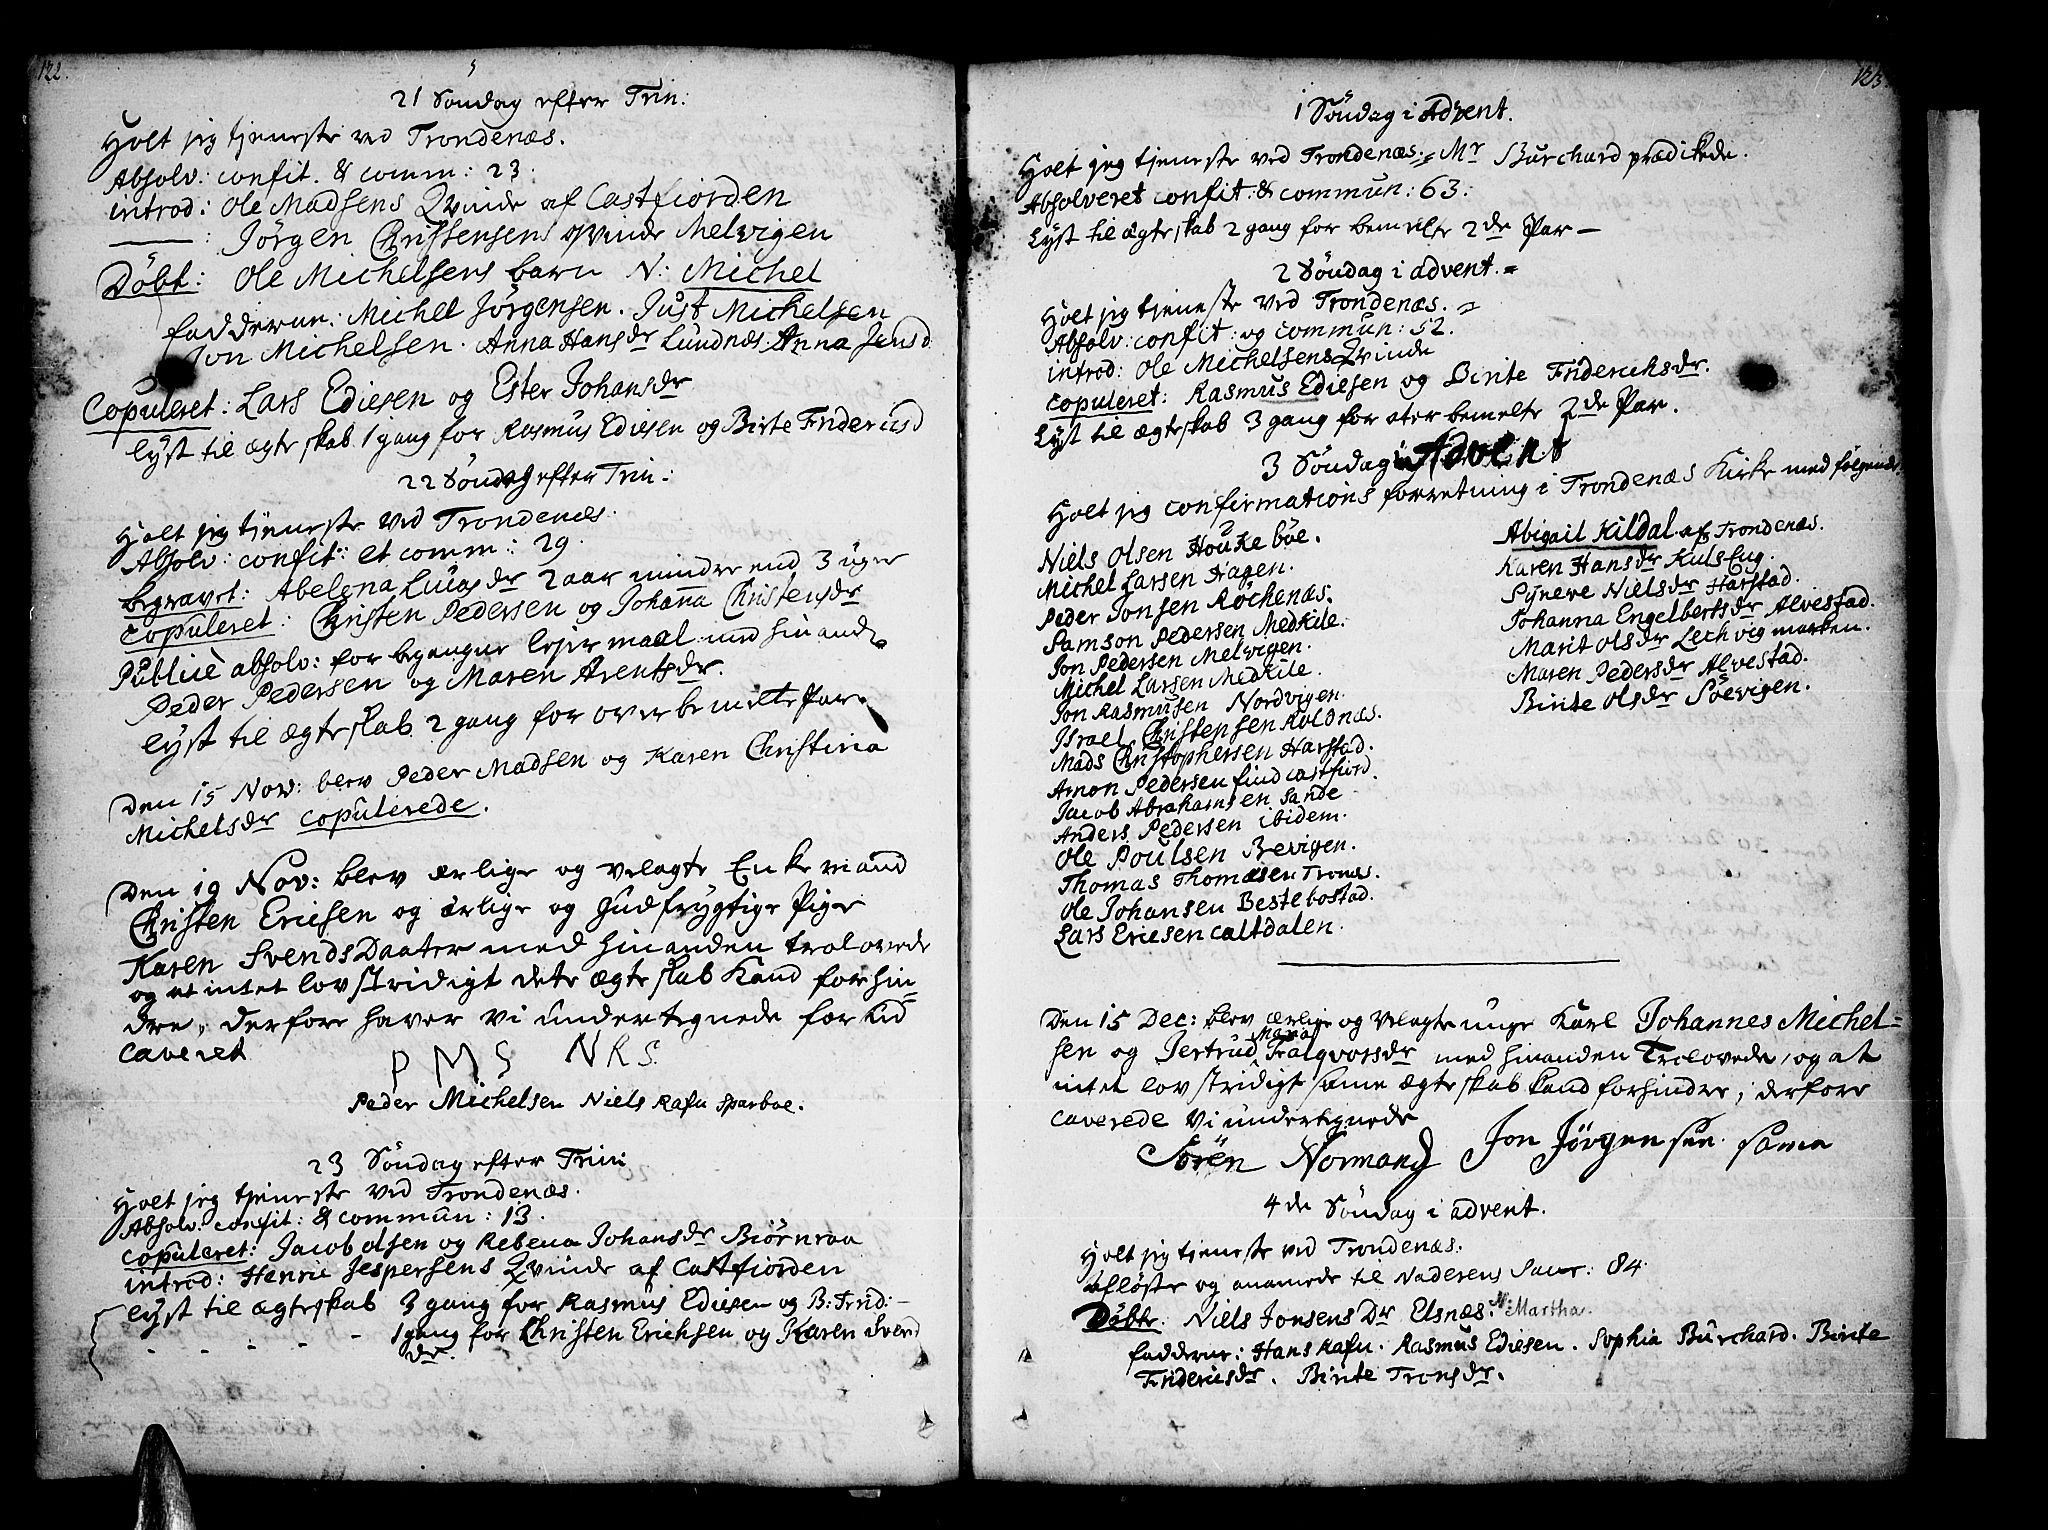 122.
21 Søndag efter Trin:
Holt jeg tjeneste ved Trondenæs.
Absolv: confit. & comm: 23.
introd: Ole Madsens Qvinde af Castfiorden
—— : Jörgen Christensens qvinde Melvigen
Döbt: Ole Michelsens barn N: Michel
fadderne: Michel Jörgensen. Just Michelsen
Jon Michelsen. Anna Hansdr Lundnæs. Anna Jensd
Copuleret: Lars Ediesen og Ester Johansdr
lyst til ægteskab 1 gang for Rasmus Ediesen og Birte Friderichsd
22 Söndag efter Trin:
Holt jeg tjeneste ved Trondenæs.
Absolv: confit: et comm: 29.
begravet: Abelona Lucasdr 2 aar mindre end 3 uger
copuleret: Christen Pedersen og Johanna Christensdr
Publicè absolv: for begangne lejermaal med hinanden
Peder Pedersen og Maren Arentsdr.
lyst til ægteskab 2 gang for overbemelte Par.
Den 15 Nov: blev Peder Madsen og Karen Christina
Michelsdr copulerede.
Den 19 Nov: blev ærlige og velagte Enkemand
Christen Ericsen og ærlige og gudfrygtige Pige
Karen SvendsDaater med hinanden trolovede
og at intet lovstridigt dete ægteskab kand forhin=
dre, derfore haver vi undertegnede forlud
caveret
P M S N R S.
Peder Michelsen Niels Rafn Sparboe.
23 Söndag efter Trini
Holt jeg tjeneste ved Trondenæs.
Absolv: confit: & commun: 13.
copuleret: Jacob olsen og Rebecca Johansdr Biörnraa
introd: Henric Jespersens Qvinde af Castfiorden
lyst til ægteskab 3 gang for Rasmus Ediesen og B: Frid:
- - - - 1 gang for Christen Erichsen og Karen Svend
dr.
123.
1 Söndag i Advent.
Holt jeg tjeneste ved Trondenæs. Mr Burchard prædikede.
Absolveret confit: & commun: 63:
Lyst til ægteskab 2 gang for bemelte 2de Par —
2 Söndag i advent. =
Holt jeg tjeneste ved Trondenæs. =
Absolv: confit: og commun: 52.
introd: Ole Michelsens Qvinde
copuleret: Rasmus Ediesen og Birite Friderichsdr.
Lyst til ægteskab 3 gang for oter bemelte 2de Par.
3 Söndag i Advent
Holt jeg confirmations forretning i Trondenæs Kirke med fölgende
Niels Olsen Houkeböe.
Michel Larsen Hagen.
Peder Jonsen Röchenæs.
Samson Pedersen Medkile.
Jon Pedersen Melvigen.
Michel Larsen Medkile.
Jon Rasmusen Nordvigen.
Israel Christensen Roldnæs.
Mads Christophersen Harstad.
Amon Pedersen find castfiord.
Jacob Abrahamsen Sande
Anders Pedersen ibidem.
Ole Poulsen Bevigen.
Thomas Thomæsen Tronæs.
Ole Johansen Bestebostad.
Lars Ericsen caltdalen.
Abigail Kildal af Trondenæs.
Karen Hansdr Kulseng.
Syneve Nielsdr Harstad.
Johanna Engelbertsdr Alvestad.
Marit olsdr Lechvigmarken.
Maren Pedersdr Alvestad.
Birite olsdr Söevigen.
Den 15 Dec: blev ærlige og velagte unge Karl Johannes Michel=
sen og Jertrud Maria Tralqvorsdr med hinanden Trolovede, og at
intet lovstridigt same ægteskab kand forhindre; derfore
caverede vi undertegnede
Sören Normand Jon Jörgensen sama
4de Söndag i advent.
Holt jeg tjeneste ved Trondenæs.
aflöste og anamede til Naderens Sacr: 84.
Döbte. Niels Jonsens Dr Elsnæs. N: Martha
fadderne: Hans Rafn. Rasmus Ediesen. Sophia Burchard. Birite
Fridericsdr. Birite Tronsdr.